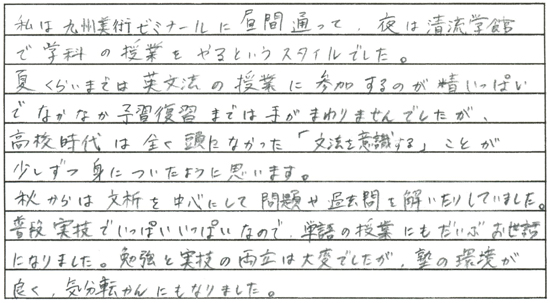 私は九州美術ゼミナールに昼間通って、夜は清流学館
で学科の授業をやるというスタイルでした。
夏くらいまでは英文法の授業に参加するのが精いっぱい
でなかなか予習復習までは手がまわりませんでしたが、
高校時代は全く頭になかった「文法を意識する」ことが
少しずつ身についたように思います。
秋からは文析を中心にして問題や過去問を解いたりしていました。
普段実技でいっぱいいっぱいなので、単語の授業にもだいぶお世話
になりました。勉強と実技の両立は大変でしたが、塾の環境が
良く、気分転かんにもなりました。